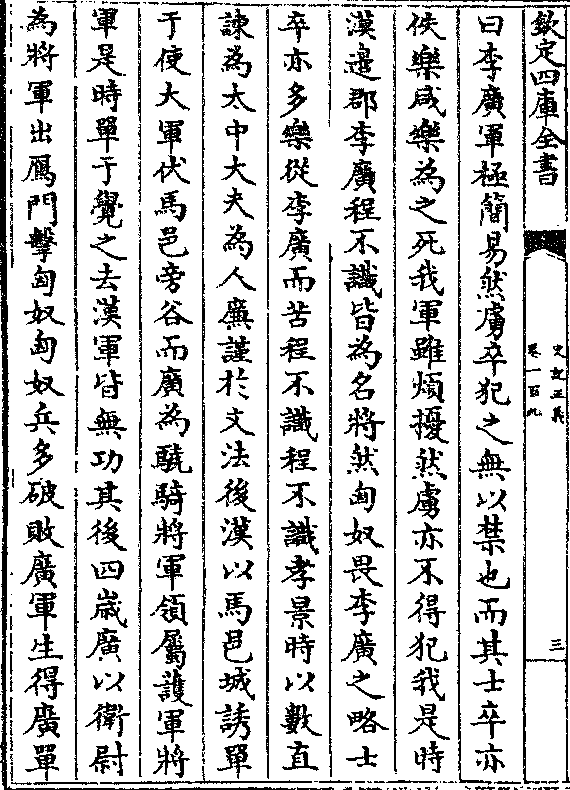 欽定四庫全書
史記正義
卷一百九
三
曰李廣軍極簡易然虜卒犯之無以禁也而其士卒亦
佚樂咸樂為之死我軍雖煩擾然虜亦不得犯我是時
漢邊郡李廣程不識皆為名將然匈奴畏李廣之略士
卒亦多樂從李廣而苦程不識程不識孝景時以數直
諫為太中大夫為人廉謹於文法後漢以馬邑城誘單
于使大軍伏馬邑旁谷而廣為驍騎將軍領屬護軍將
軍是時單于覺之去漢軍皆無功其後四嵗廣以衛尉
為將軍出鴈門擊匈奴匈奴兵多破敗廣軍生得廣單